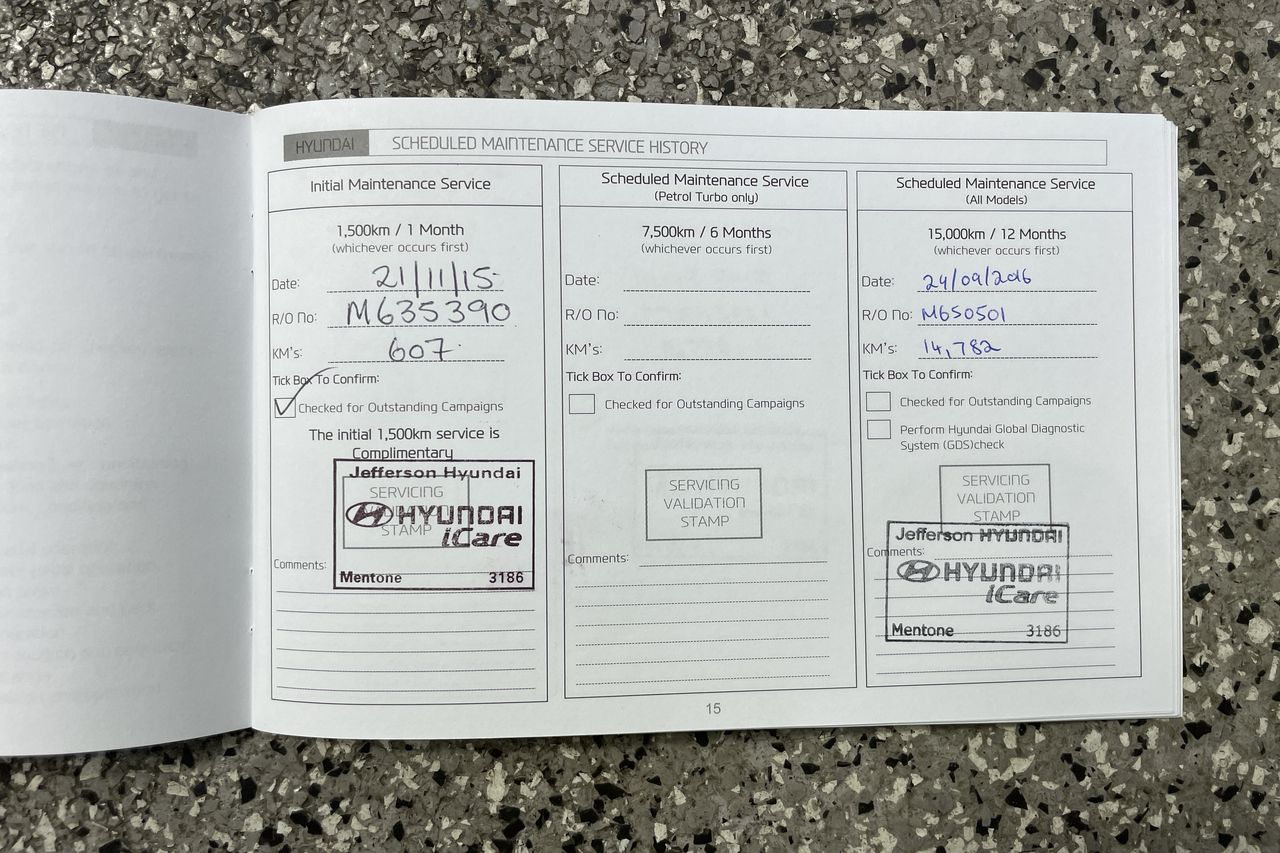 HYUNDAI SCHEDULED MAINTENANCE SERVICE HISTORY
Initial Maintenance Service
1,500km / 1 Month
(whichever occurs first)
Date: 21/11/15
R/O No: M635390
KM's: 607
Tick Box To Confirm:
Checked for Outstanding Campaigns
The initial 1,500km service is
Complimentary
Jefferson Hyundai
SERVICING
HYUNDAI
STAMP
iCare
Comments:
Mentone 3186
Scheduled Maintenance Service
(Petrol Turbo only)
7,500km / 6 Months
(whichever occurs first)
Date:
R/O No:
KM's:
Tick Box To Confirm:
Checked for Outstanding Campaigns
SERVICING
VALIDATION
STAMP
Comments:
Scheduled Maintenance Service
(All Models)
15,000km / 12 Months
(whichever occurs first)
Date: 24/09/2016
R/O No: M650501
KM's: 14,782
Tick Box To Confirm:
Checked for Outstanding Campaigns
Perform Hyundai Global Diagnostic
System (GDS)check
SERVICING
VALIDATION
STAMP
Jefferson HYUNDAI
Comments:
HYUNDAI
iCare
Mentone 3186
15